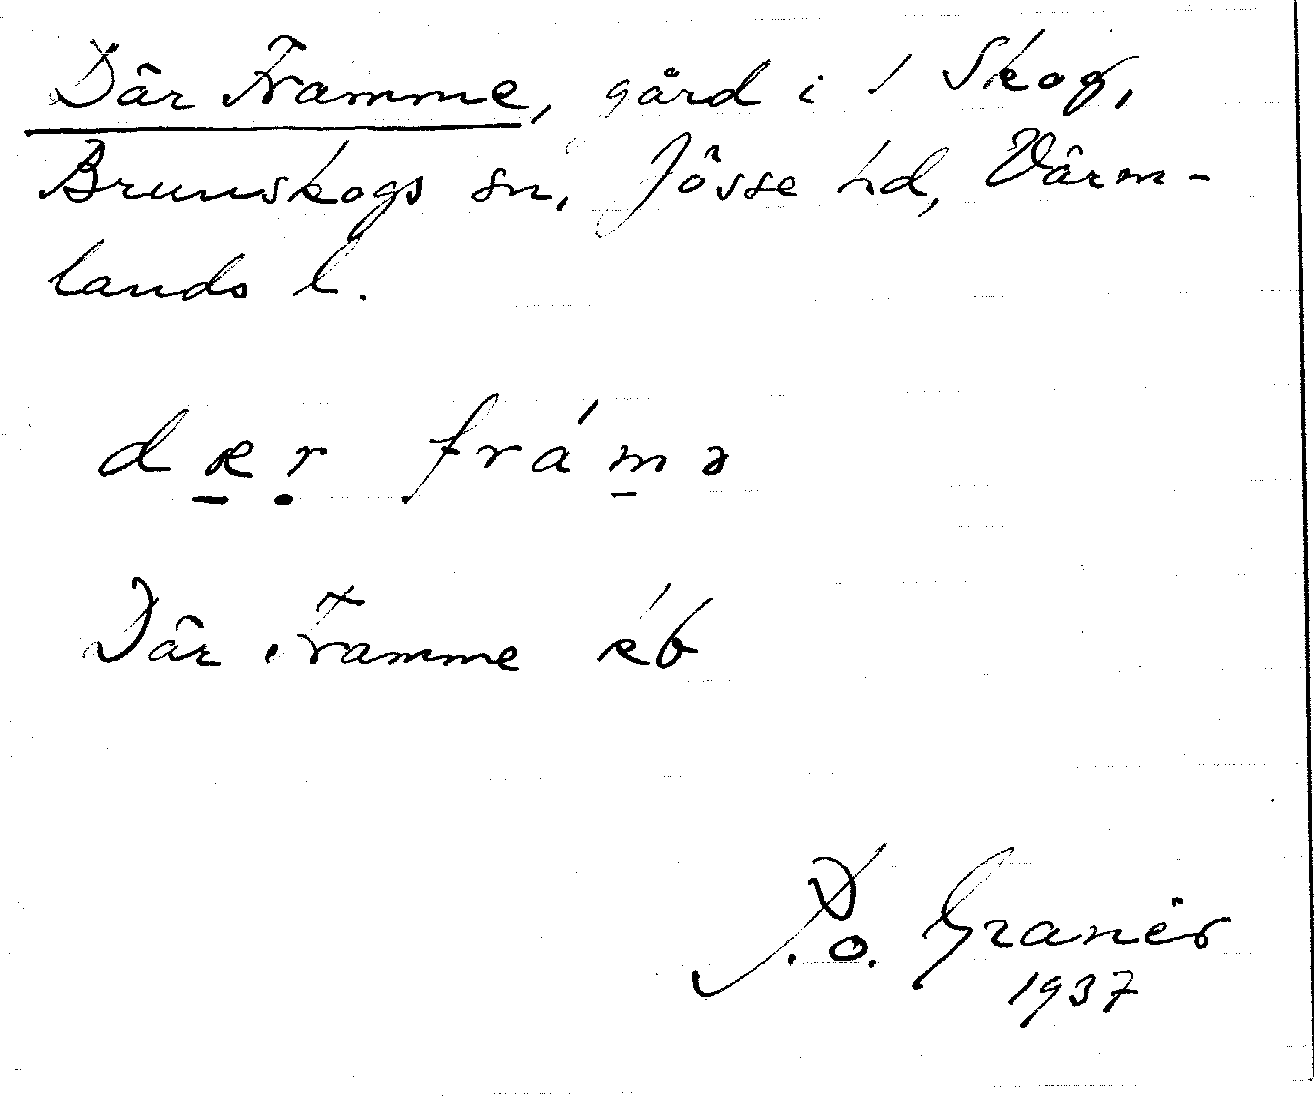 Där Framme, gård i 1 Skog,
Brunskogs sn, Jösse hd, Värm-
lands l.
dær frámə
Där Framme
P. O. Granér
1937